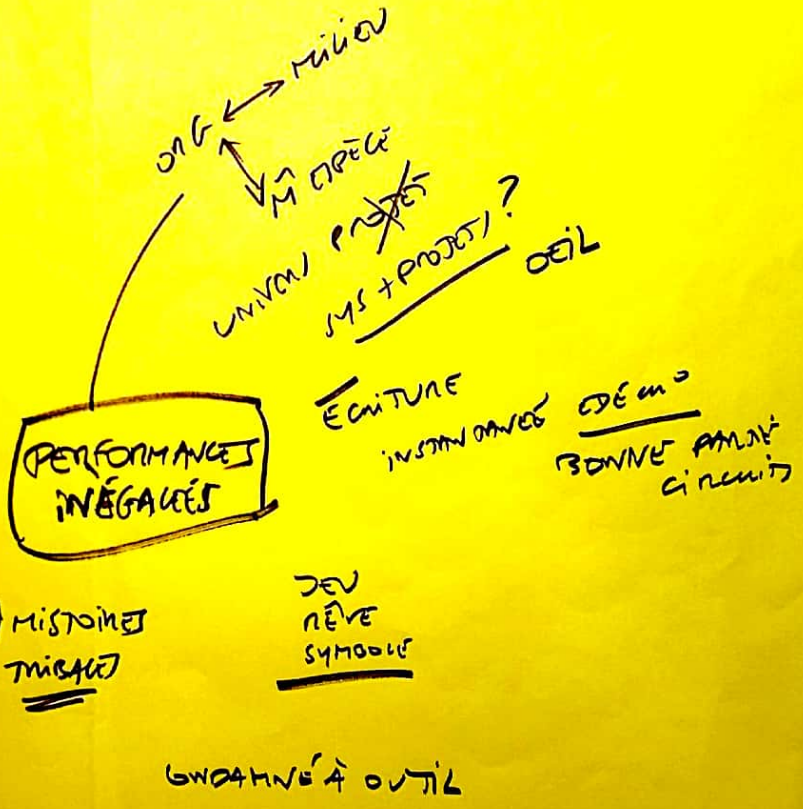 ORG ↔ MILIEU
↔ M̂ ESPÈCE
UNIVERS PROJET
SYS + PROJETS ?
OEIL
ÉCRITURE
INSTANTANÉE
BONNE PARTIE
CIRCUITS
PERFORMANCES
INÉGALÉES
HISTOIRES
TRIBALES
JEU
RÊVE
SYMBOLE
CONDAMNÉ À OUTIL